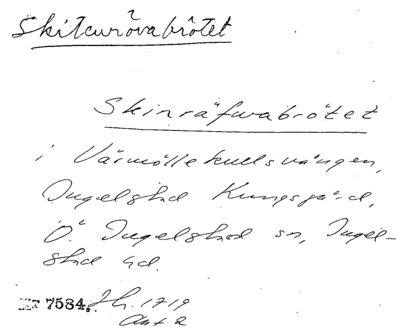 Skitcurövabrötet
Skinräfwabrötet
i Värmöllekullsvången,
Ingelstad Kungsgård,
Ö. Ingelstad sn, Ingel-
stad hd.
7584. Jh. 1719
Akt 2